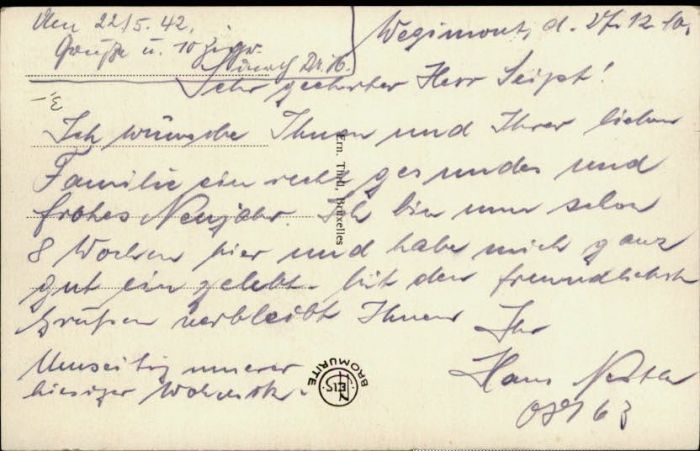 22/5. 42.
Grüße u. 10 Zigr.
durch Dr. W.
Wegimont, d. 27.12.40.
Sehr geehrter Herr Seipt!
Ich wünsche Ihnen und Ihrer lieben
Familie ein recht gesundes und
frohes Neujahr. Ich bin nun schon
8 Wochen hier und habe mich ganz
gut eingelebt. Mit den freundlichsten
Grüßen verbleibt Ihnen Ihr
Hans
Umseitig unserer
hiesiger
Ern. Thill, Bruxelles
BROMURITE
NELS